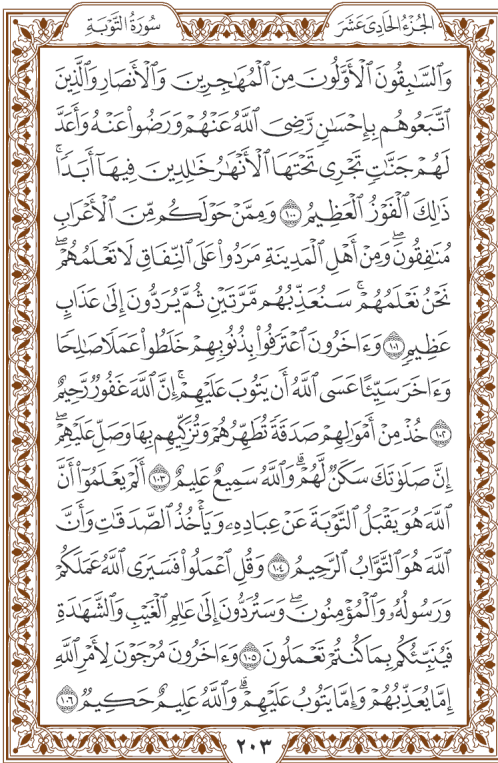 الجُزْءُ الحَادِي عَشَرَ سُورَةُ التَّوْبَةِ
وَٱلسَّٰبِقُونَ ٱلْأَوَّلُونَ مِنَ ٱلْمُهَٰجِرِينَ وَٱلْأَنصَارِ وَٱلَّذِينَ
ٱتَّبَعُوهُم بِإِحْسَٰنٍ رَّضِىَ ٱللَّهُ عَنْهُمْ وَرَضُوا۟ عَنْهُ وَأَعَدَّ
لَهُمْ جَنَّٰتٍ تَجْرِى تَحْتَهَا ٱلْأَنْهَٰرُ خَٰلِدِينَ فِيهَآ أَبَدًا ۚ
ذَٰلِكَ ٱلْفَوْزُ ٱلْعَظِيمُ ١٠٠ وَمِمَّنْ حَوْلَكُم مِّنَ ٱلْأَعْرَابِ
مُنَٰفِقُونَ ۖ وَمِنْ أَهْلِ ٱلْمَدِينَةِ مَرَدُوا۟ عَلَى ٱلنِّفَاقِ لَا تَعْلَمُهُمْ ۖ
نَحْنُ نَعْلَمُهُمْ ۚ سَنُعَذِّبُهُم مَّرَّتَيْنِ ثُمَّ يُرَدُّونَ إِلَىٰ عَذَابٍ
عَظِيمٍ ١٠١ وَءَاخَرُونَ ٱعْتَرَفُوا۟ بِذُنُوبِهِمْ خَلَطُوا۟ عَمَلًا صَٰلِحًا
وَءَاخَرَ سَيِّئًا عَسَى ٱللَّهُ أَن يَتُوبَ عَلَيْهِمْ ۚ إِنَّ ٱللَّهَ غَفُورٌ رَّحِيمٌ
١٠٢ خُذْ مِنْ أَمْوَٰلِهِمْ صَدَقَةً تُطَهِّرُهُمْ وَتُزَكِّيهِم بِهَا وَصَلِّ عَلَيْهِمْ ۖ
إِنَّ صَلَوٰتَكَ سَكَنٌ لَّهُمْ ۗ وَٱللَّهُ سَمِيعٌ عَلِيمٌ ١٠٣ أَلَمْ يَعْلَمُوٓا۟ أَنَّ
ٱللَّهَ هُوَ يَقْبَلُ ٱلتَّوْبَةَ عَنْ عِبَادِهِۦ وَيَأْخُذُ ٱلصَّدَقَٰتِ وَأَنَّ
ٱللَّهَ هُوَ ٱلتَّوَّابُ ٱلرَّحِيمُ ١٠٤ وَقُلِ ٱعْمَلُوا۟ فَسَيَرَى ٱللَّهُ عَمَلَكُمْ
وَرَسُولُهُۥ وَٱلْمُؤْمِنُونَ ۖ وَسَتُرَدُّونَ إِلَىٰ عَٰلِمِ ٱلْغَيْبِ وَٱلشَّهَٰدَةِ
فَيُنَبِّئُكُم بِمَا كُنتُمْ تَعْمَلُونَ ١٠٥ وَءَاخَرُونَ مُرْجَوْنَ لِأَمْرِ ٱللَّهِ
إِمَّا يُعَذِّبُهُمْ وَإِمَّا يَتُوبُ عَلَيْهِمْ ۗ وَٱللَّهُ عَلِيمٌ حَكِيمٌ ١٠٦
٢٠٣